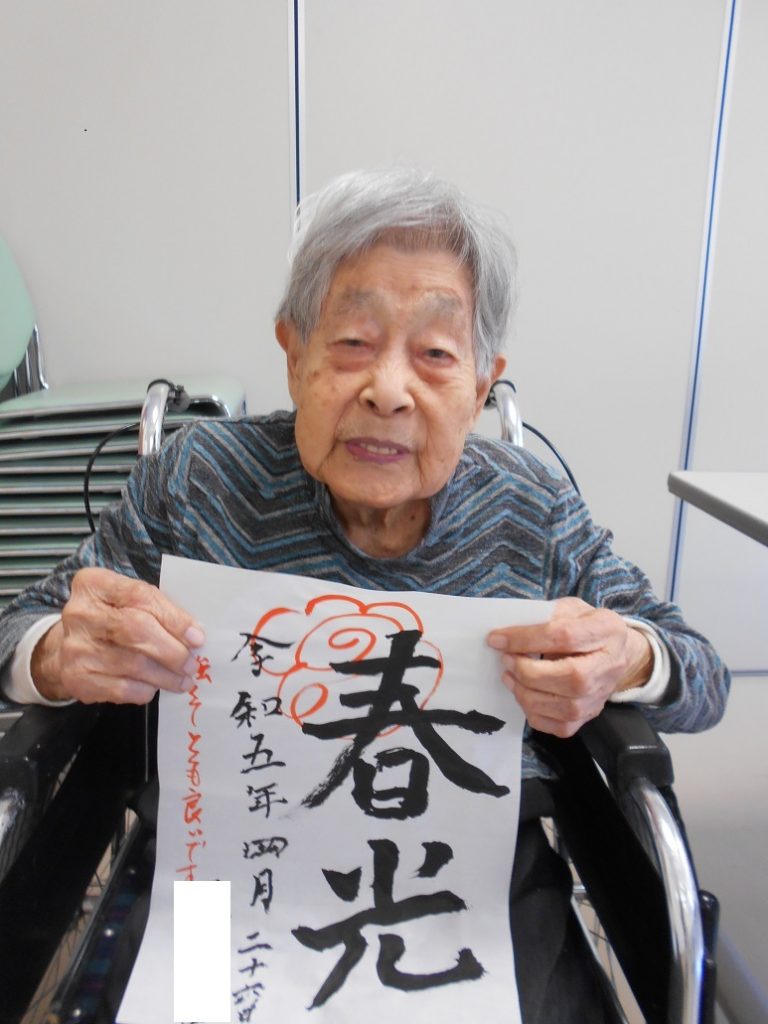 春光
令和五年四月二十六日
強くてとても良いです